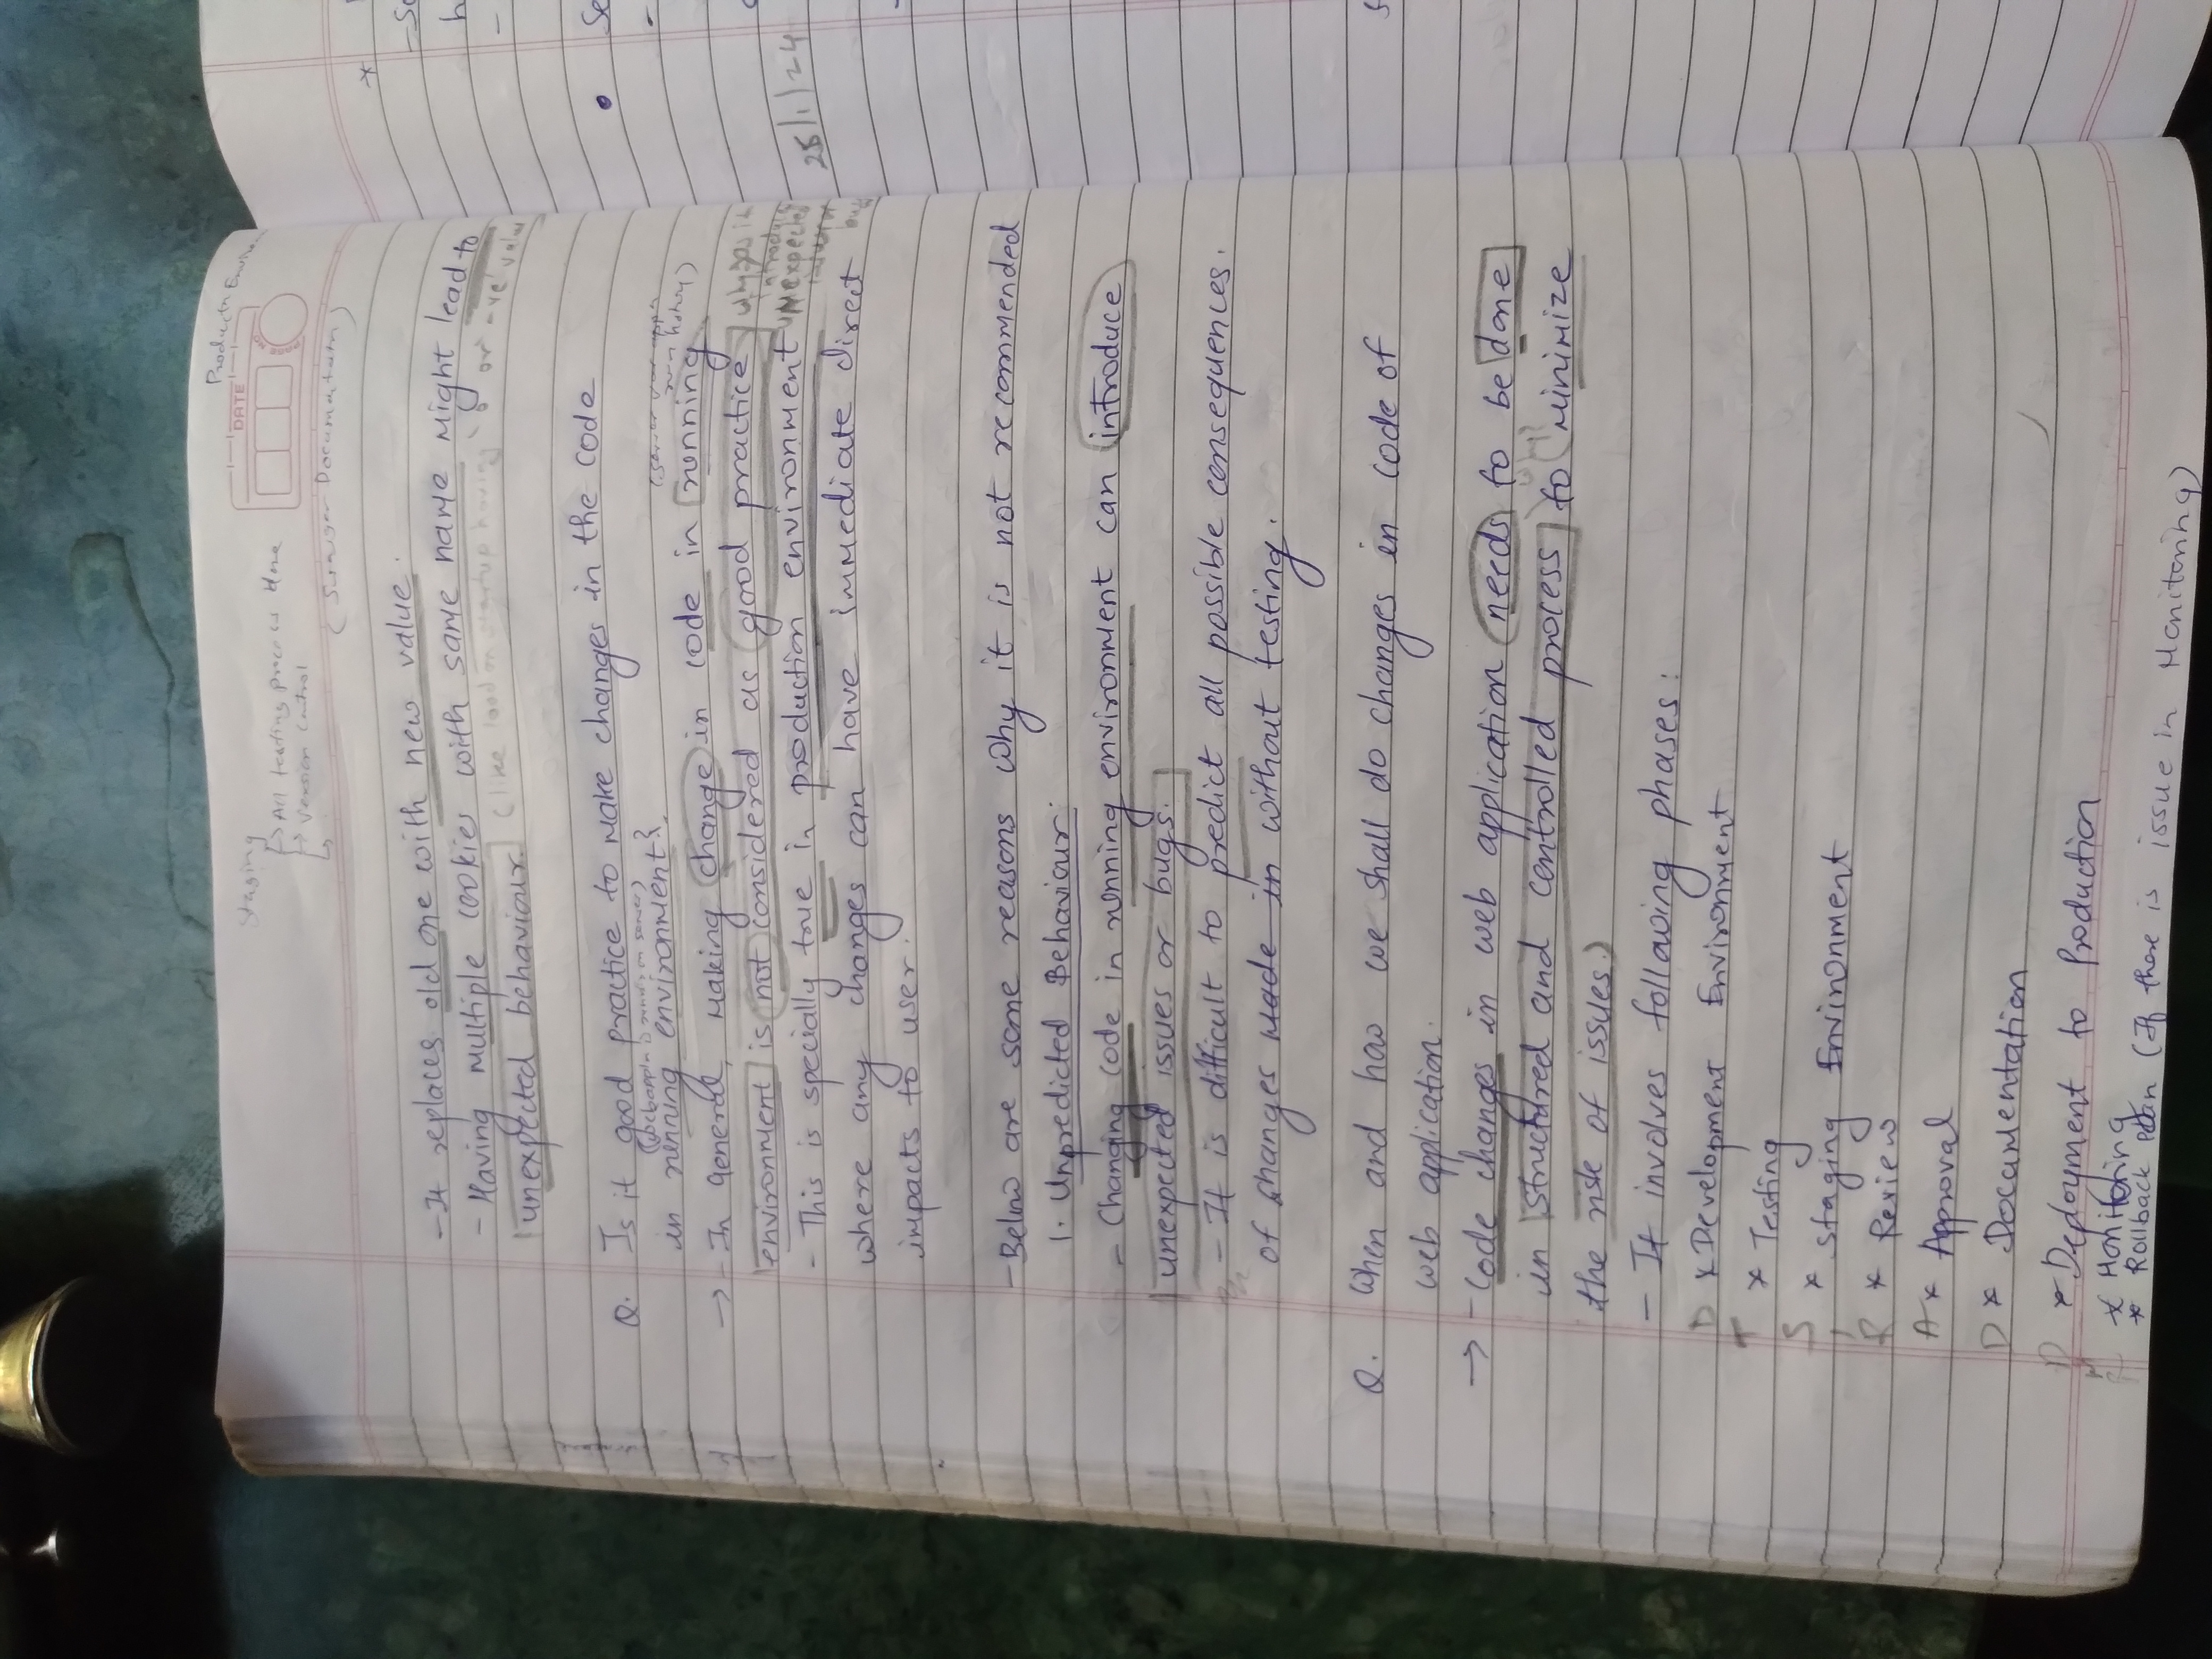 Productn Environ
Staging
DATE
→ All testing process done
PAGE NO.
→ Version control
(Swagger Documentation)
- It replaces old one with new value.
- Having multiple cookies with same name might lead to
unexpected behaviour. (like load on startup having 0 or -ve value
Q. Is it good practice to make changes in the code
(webappln is on server)
in running environment?
(server
→ - In General, making change in code in running
environment is not considered as good practice
introduce
- This is specially true in production environment unexpected
25/1/24
where any changes can have immediate direct bugs
impacts to user.
- Below are some reasons why it is not recommended
1. Unpredicted Behaviour:
- Changing code in running environment can introduce
unexpected issues or bugs.
- It is difficult to predict all possible consequences.
of changes made in without testing.
Q. When and how we shall do changes in code of
web application.
→ - Code changes in web application needs to be done
why?
in structured and controlled process to (minimize
the risk of issues.)
- It involves following phases:
D * Development Environment
T * Testing
S * Staging Environment
R * Review
A * Approval
D * Documentation
D * Deployment to Production
* Monitoring
* Rollback plan (If there is issue in Monitoring)